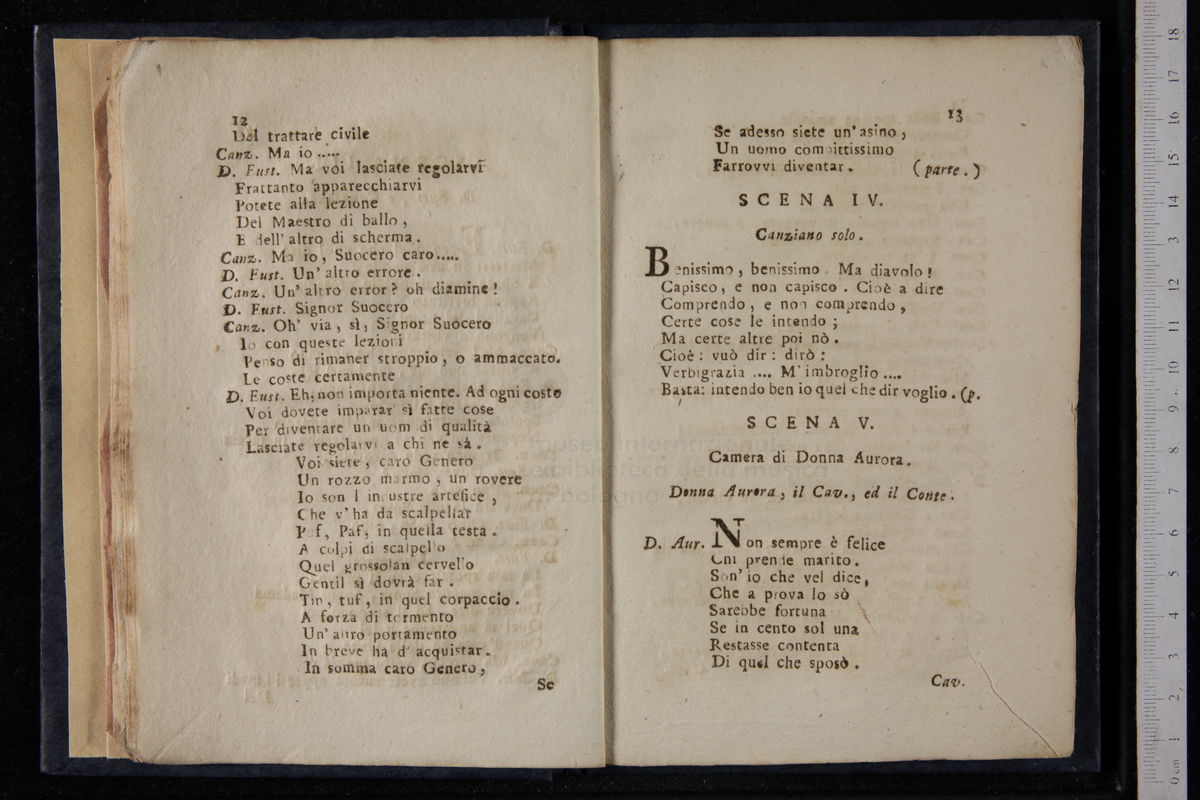 12
Del trattare civile
Canz. Ma io .....
D. Fust. Ma voi lasciate regolarvi
Frattanto apparecchiarvi
Potete alla lezione
Del Maestro di ballo ,
E dell' altro di scherma .
Canz. Ma io , Suocero caro.....
D. Fust. Un' altro errore .
Canz. Un' altro error ? oh diamine !
D. Fust. Signor Suocero
Canz. Oh' via , sì, Signor Suocero
Io con queste lezioni
Penso di rimaner stroppio , o ammaccato.
Le coste certamente
D. Fust. Eh, non importa niente. Ad ogni costo
Voi dovete imparar sì fatte cose
Per diventare un uom di qualità
Lasciate regolarvi a chi ne sà .
Voi siete , caro Genero
Un rozzo marmo , un rovere
Io son l industre artefice ,
Che v' ha da scalpellar
Paf, Paf, in quella testa .
A colpi di scalpello
Quel grossolan cervello
Gentil sì dovrà far .
Tin , tuf , in quel corpaccio .
A forza di tormento
Un' altro portamento
In breve ha d' acquistar .
In somma caro Genero ,
Se
13
Se adesso siete un' asino ,
Un uomo compittissimo
Farrovvi diventar . ( parte . )
SCENA IV.
Canziano solo .
Benissimo , benissimo . Ma diavolo !
Capisco , e non capisco . Cioè a dire
Comprendo , e non comprendo ,
Certe cose le intendo ;
Ma certe altre poi nò .
Cioè : vuò dir : dirò :
Verbigrazia .... M' imbroglio ....
Basta: intendo ben io quel che dir voglio . (p.
SCENA V.
Camera di Donna Aurora .
Donna Aurora , il Cav. , ed il Conte .
D. Aur. Non sempre è felice
Chi prende marito .
Son' io che vel dice ,
Che a prova lo sò
Sarebbe fortuna
Se in cento sol una
Restasse contenta
Di quel che sposò .
Cav.
museo internazionale
e biblioteca della musica
di bologna
0 cm 1 2 3 4 5 6 7 8 9 10 11 12 13 14 15 16 17 18